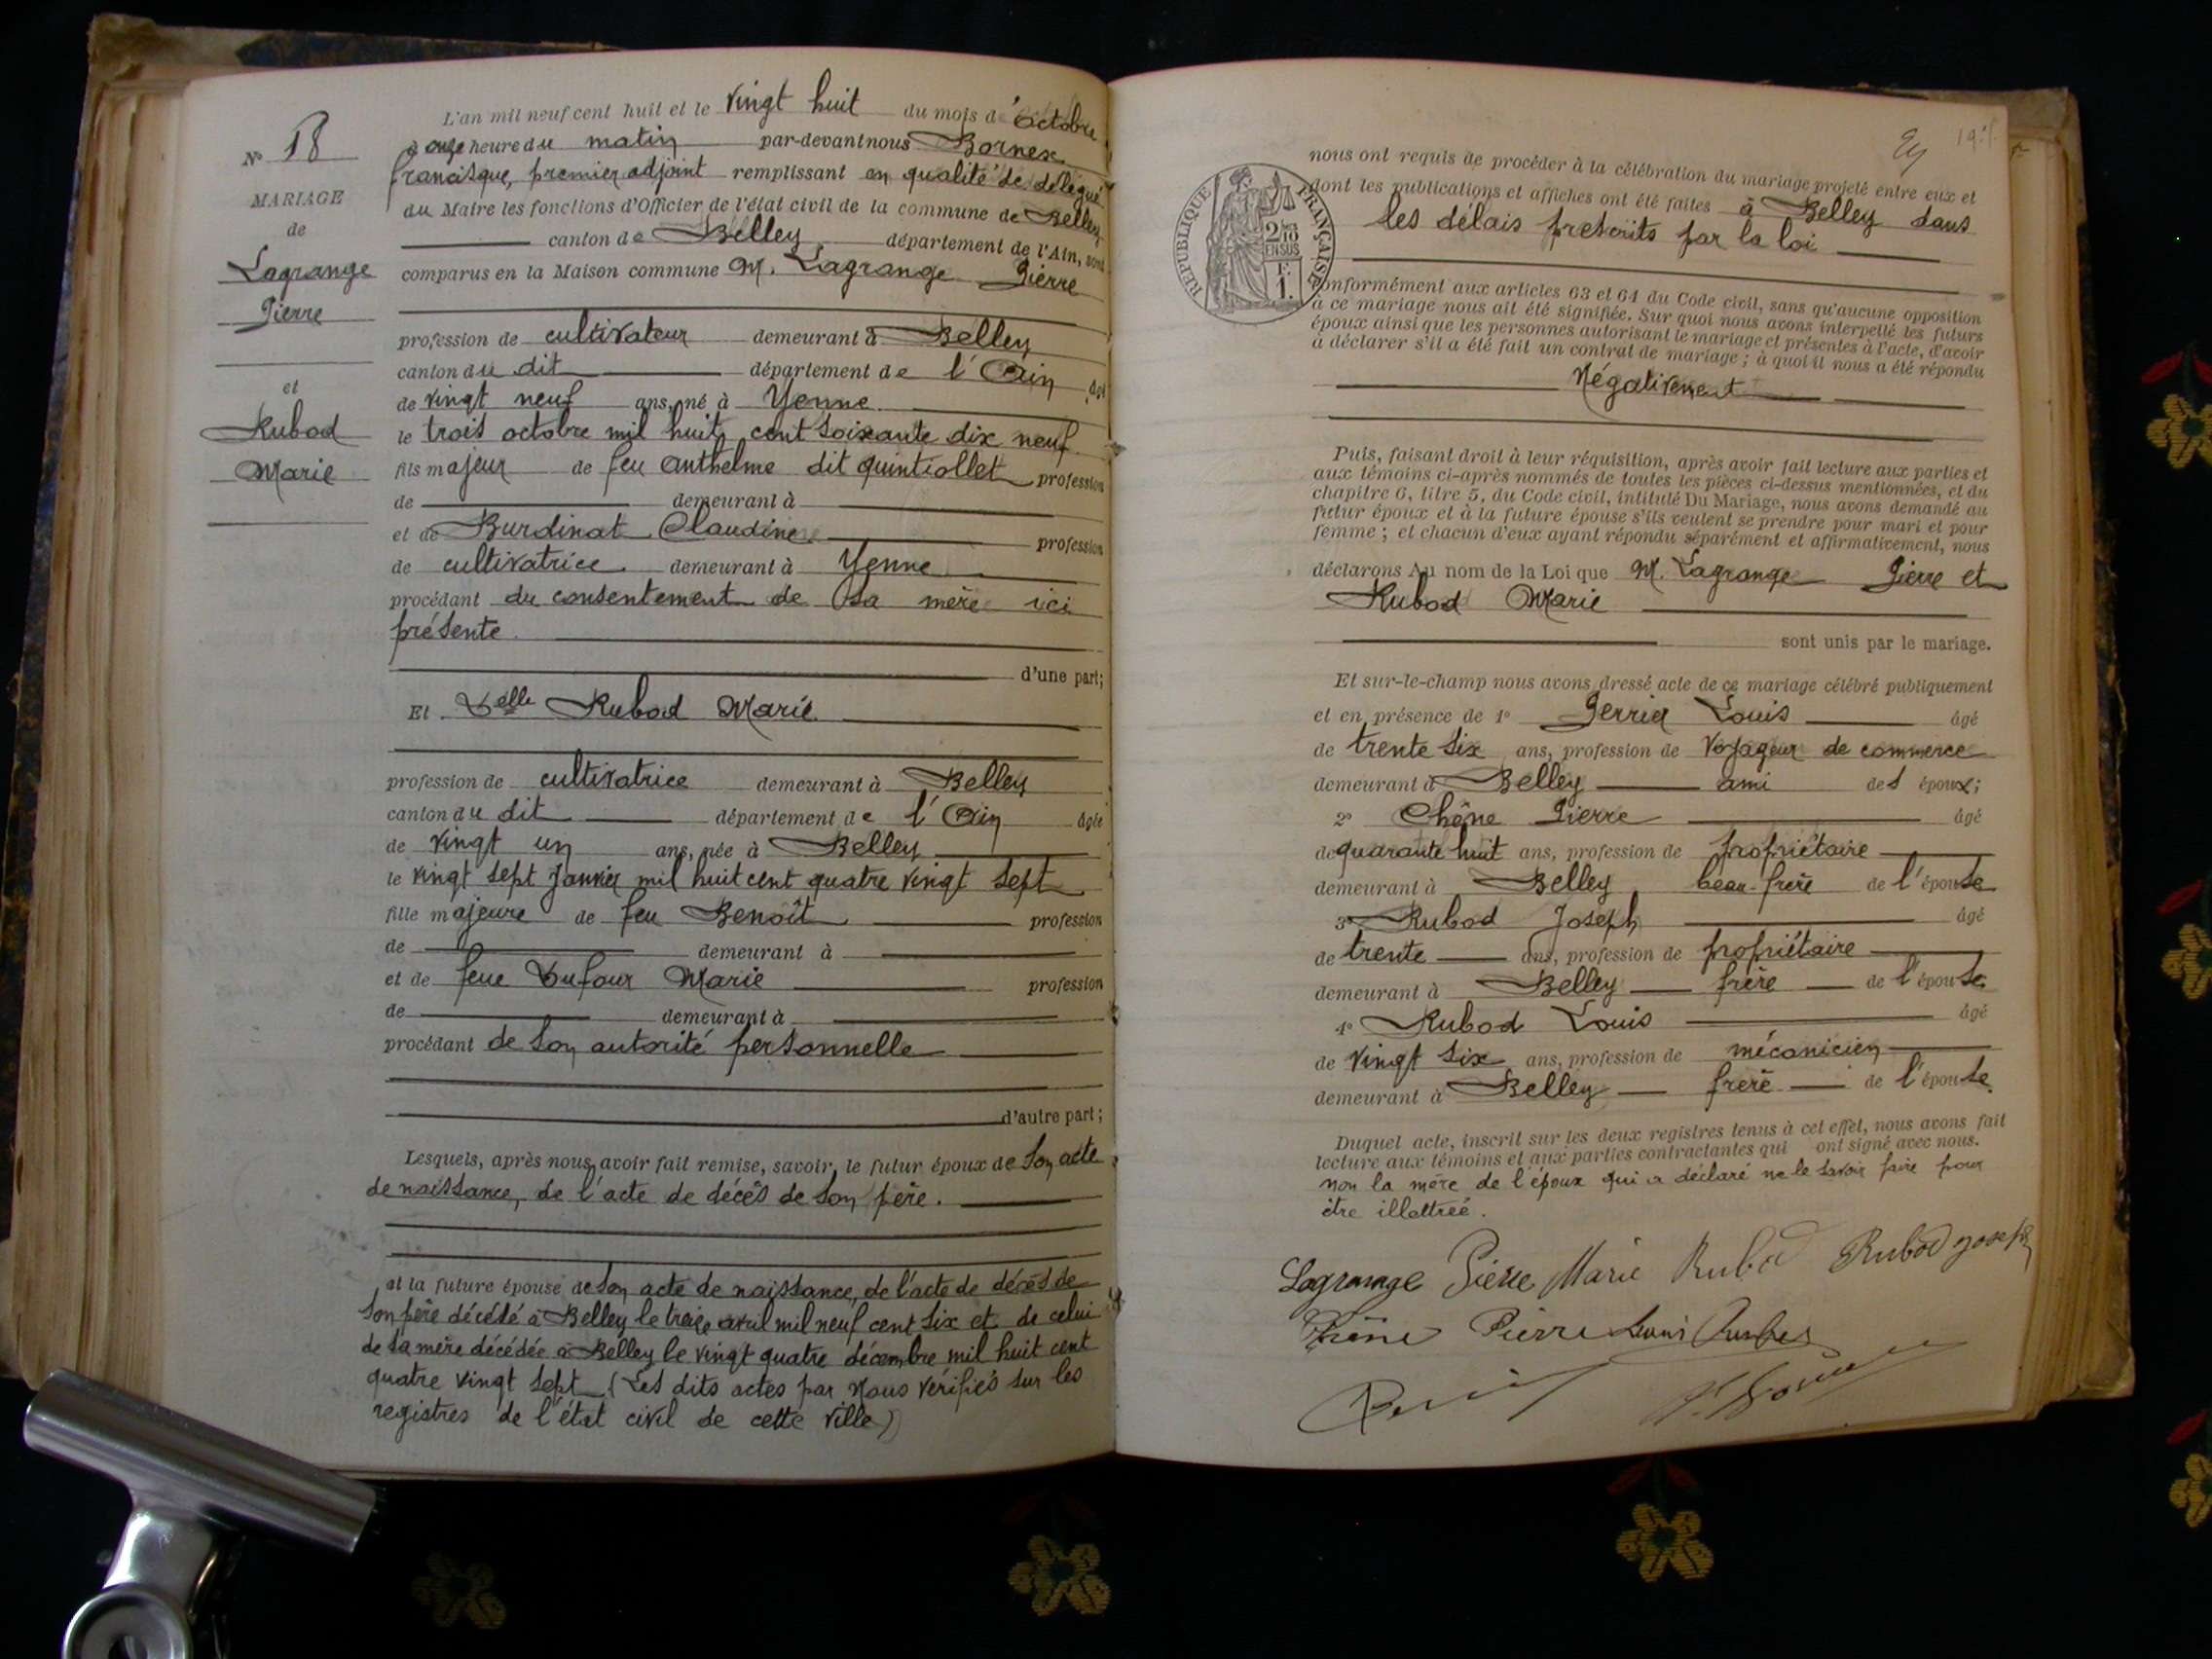 L'an mil neuf cent huit et le vingt huit du mois d'Octobre
N° 18
à onze heure du matin par-devant nous Bornex
francisque, premier adjoint remplissant en qualité de délégué
MARIAGE
du Maire les fonctions d'Officier de l'état civil de la commune de Belley
de
canton de Belley département de l'Ain, sont
Lagrange
comparus en la Maison commune M. Lagrange Pierre
Pierre
profession de cultivateur demeurant à Belley
canton du dit département de l'Ain âgé
et
de vingt neuf ans, né à Yenne
Rubod
le trois octobre mil huit cent soixante dix neuf
Marie
fils majeur de feu Anthelme dit quintiollet profession
de demeurant à
et de Burdinat Claudine profession
de cultivatrice demeurant à Yenne
procédant du consentement de sa mère ici
présente.
d'une part;
Et Delle Rubod Marie
profession de cultivatrice demeurant à Belley
canton du dit département de l'Ain âgée
de vingt un ans, née à Belley
le vingt sept Janvier mil huit cent quatre vingt sept
fille majeure de feu Benoît profession
de demeurant à
et de feue Dufour Marie profession
de demeurant à
procédant de son autorité personnelle
d'autre part;
Lesquels, après nous avoir fait remise, savoir, le futur époux de son acte
de naissance, de l'acte de décès de son père.
et la future épouse de son acte de naissance, de l'acte de décès de
son père décédé à Belley le treize avril mil neuf cent six et de celui
de sa mère décédée à Belley le vingt quatre décembre mil huit cent
quatre vingt sept (Les dits actes par Nous vérifiés sur les
registres de l'état civil de cette ville)
RÉPUBLIQUE FRANÇAISE
2/10 EN SUS
F. 1.
nous ont requis de procéder à la célébration du mariage projeté entre eux et
dont les publications et affiches ont été faites à Belley dans
les délais prescrits par la loi
conformément aux articles 63 et 64 du Code civil, sans qu'aucune opposition
à ce mariage nous ait été signifiée. Sur quoi nous avons interpellé les futurs
époux ainsi que les personnes autorisant le mariage et présentes à l'acte, d'avoir
à déclarer s'il a été fait un contrat de mariage ; à quoi il nous a été répondu
Négativement
Puis, faisant droit à leur réquisition, après avoir fait lecture aux parties et
aux témoins ci-après nommés de toutes les pièces ci-dessus mentionnées, et du
chapitre 6, titre 5, du Code civil, intitulé Du Mariage, nous avons demandé au
futur époux et à la future épouse s'ils veulent se prendre pour mari et pour
femme ; et chacun d'eux ayant répondu séparément et affirmativement, nous
déclarons Au nom de la Loi que M. Lagrange Pierre et
Rubod Marie
sont unis par le mariage.
Et sur-le-champ nous avons dressé acte de ce mariage célébré publiquement
et en présence de 1° Perrier Louis âgé
de trente six ans, profession de Voyageur de commerce
demeurant à Belley ami des époux;
2° Chêne Pierre âgé
de quarante huit ans, profession de propriétaire
demeurant à Belley beau-frère de l'épouse
3° Rubod Joseph âgé
de trente ans, profession de propriétaire
demeurant à Belley frère de l'épouse
4° Rubod Louis âgé
de vingt six ans, profession de mécanicien
demeurant à Belley frère de l'épouse.
Duquel acte, inscrit sur les deux registres tenus à cet effet, nous avons fait
lecture aux témoins et aux parties contractantes qui ont signé avec nous.
non la mère de l'époux qui a déclaré ne le savoir faire pour
être illettrée.
Lagrange Pierre Marie Rubod Rubod Joseph
Chêne Pierre Louis